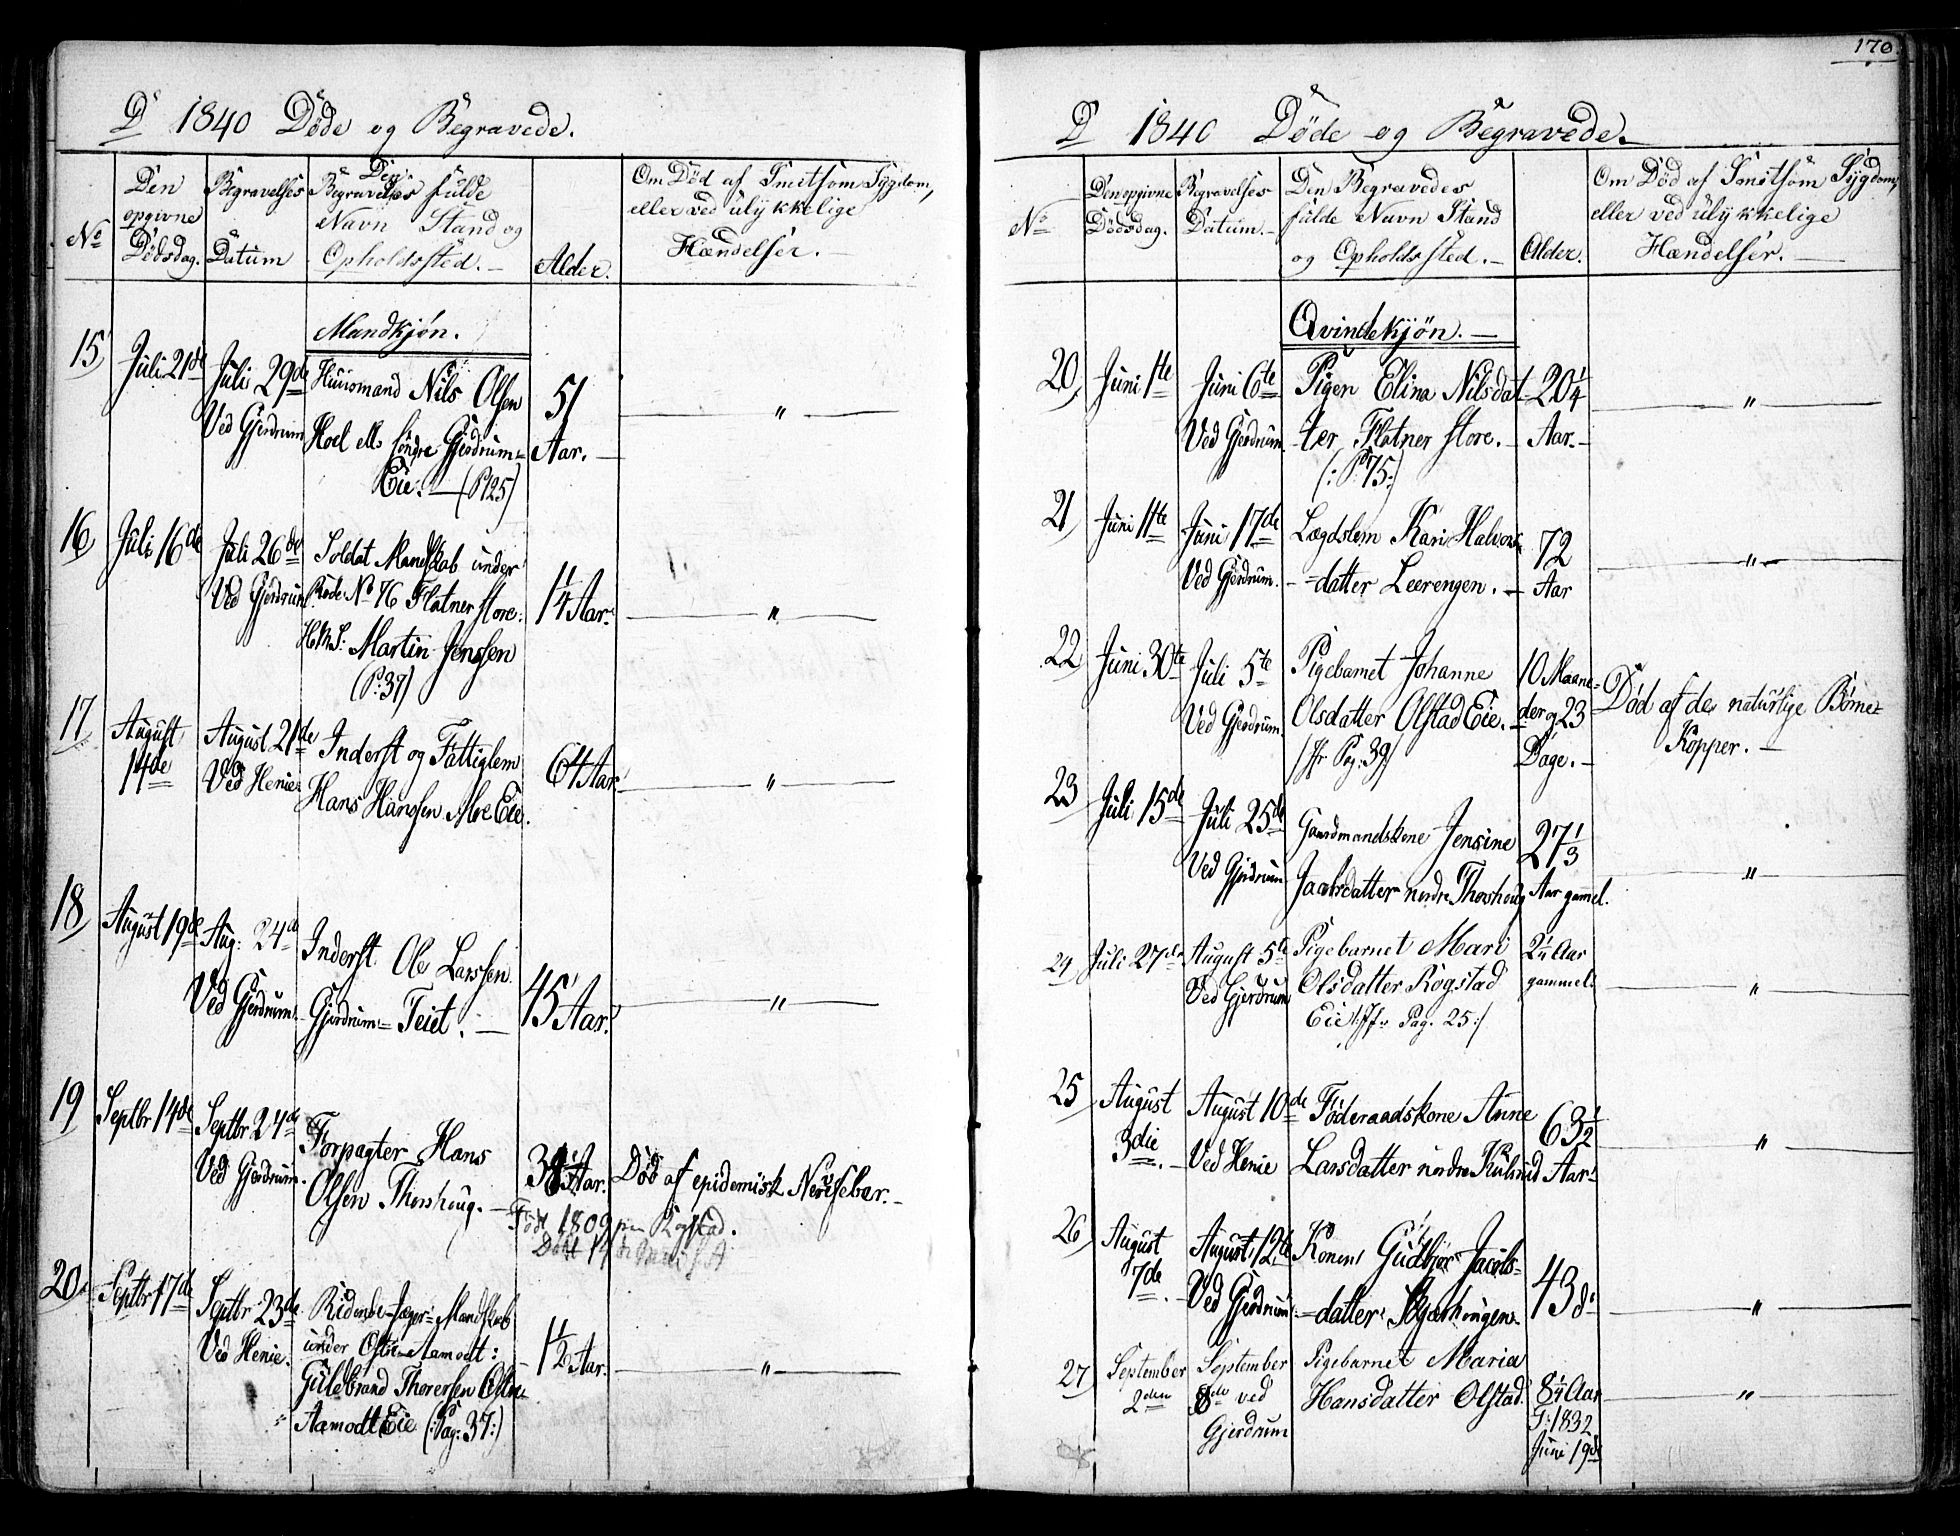 D 1840 Døde og Begravede.
No
Den opgivne Dødsdag.
Begravelses Datum
Den Begravedes fulde Navn Stand og Opholdssted.
Alder.
Om Død af Smitsom Sygdom, eller ved ulykkelige Hændelser.
Mandkjøn.
15
Juli 21de
Juli 29de
Ved Gjerdrum
Huusmand Nils Olsen
Hoel ell. søndre Gjerdrum=
Eie. (P 125)
51
Aar.
"
16
Juli 16de
Juli 26de
Ved Gjerdrum
Soldat Mandskab under
Rode No 76 Flatner store.
Martin Jenssen
(P: 37)
1 1/4 Aar.
"
17
August
14de
August 21de
Ved Henie
Inderst og Fattiglem
Hans Hanssen Mre Eie.
64 Aar
"
18
August 19de
Aug: 24de
Ved Gjerdrum
Inderst Ole Larssen
Gjerdrum= Teiet.
45 Aar.
"
19
Septbr 14de
Septbr 24de
Ved Gjerdrum.
Forpagter Hans
Olsen Thorshoug.
Aar.
Død af epidemisk Nervefeber.
Født 1809 paa Rogstad.
20
Septbr 17de
Septbr 23de
Ved Henie.
Ridende Jæger= Mandskab
under Aamodt:
Guldbrand Thorersen
Aamodt Eie (:Pag: 37:)
1 1/2 Aar.
"
170.
D 1840 Døde og Begravede.
No
Den opgivne Dødsdag.
Begravelses Datum.
Den Begravedes fulde Navn Stand og Opholdssted.
Alder.
Om Død af Smitsom Sygdom, eller ved ulykkelige Hændelser.
Qvindekjøn.
20
Juni 1te
Juni 6te
Ved Gjerdrum
Pigen Elina Nilsdat
ter Flatner store.
(: P: 75:)
20 1/4
Aar.
"
21
Juni 11te
Juni 17de
Ved Gjerdrum.
Lægdslem Kari Halvors
=datter Leerengen.
72
Aar
"
22
Juni 30te
Juli 5te
Ved Gjerdrum
Pigebarnet Johanne
Olsdatter Olstad Eie.
/Jfr Pag: 39/
10 Maane=
der og 23
Dage.
Død af de naturlige Børne=
Kopper.
23
Juli 15de
Juli 25de
Ved Gjerdrum
Gaardmandskone Jensine
Jacobsdatter nordre Thorshoug
27 1/3
Aar gamel.
"
24
Juli 27de
August 5te
Ved Gjerdrum
Pigebarnet Mari
Olsdatter Rogstad
Eie /:Jfr Pag. 25:/
2 1/4 Aar
gammel.
"
25
August
3die.
August 10de
Ved Henie
Føderaadskone Anne
Larsdatter nordre Kulsrud
63 1/2
Aar
"
26
August
7de
August 12te
Ved Gjerdrum
Konen Gudbjør Jacobs=
=datter
43 do
"
27
September
2den
September
8de ved
Gjerdrum
Pigebarnet Maria
Hansdatter Olstad
8 1/4 Aar
F: 1832
Juni 19de
"